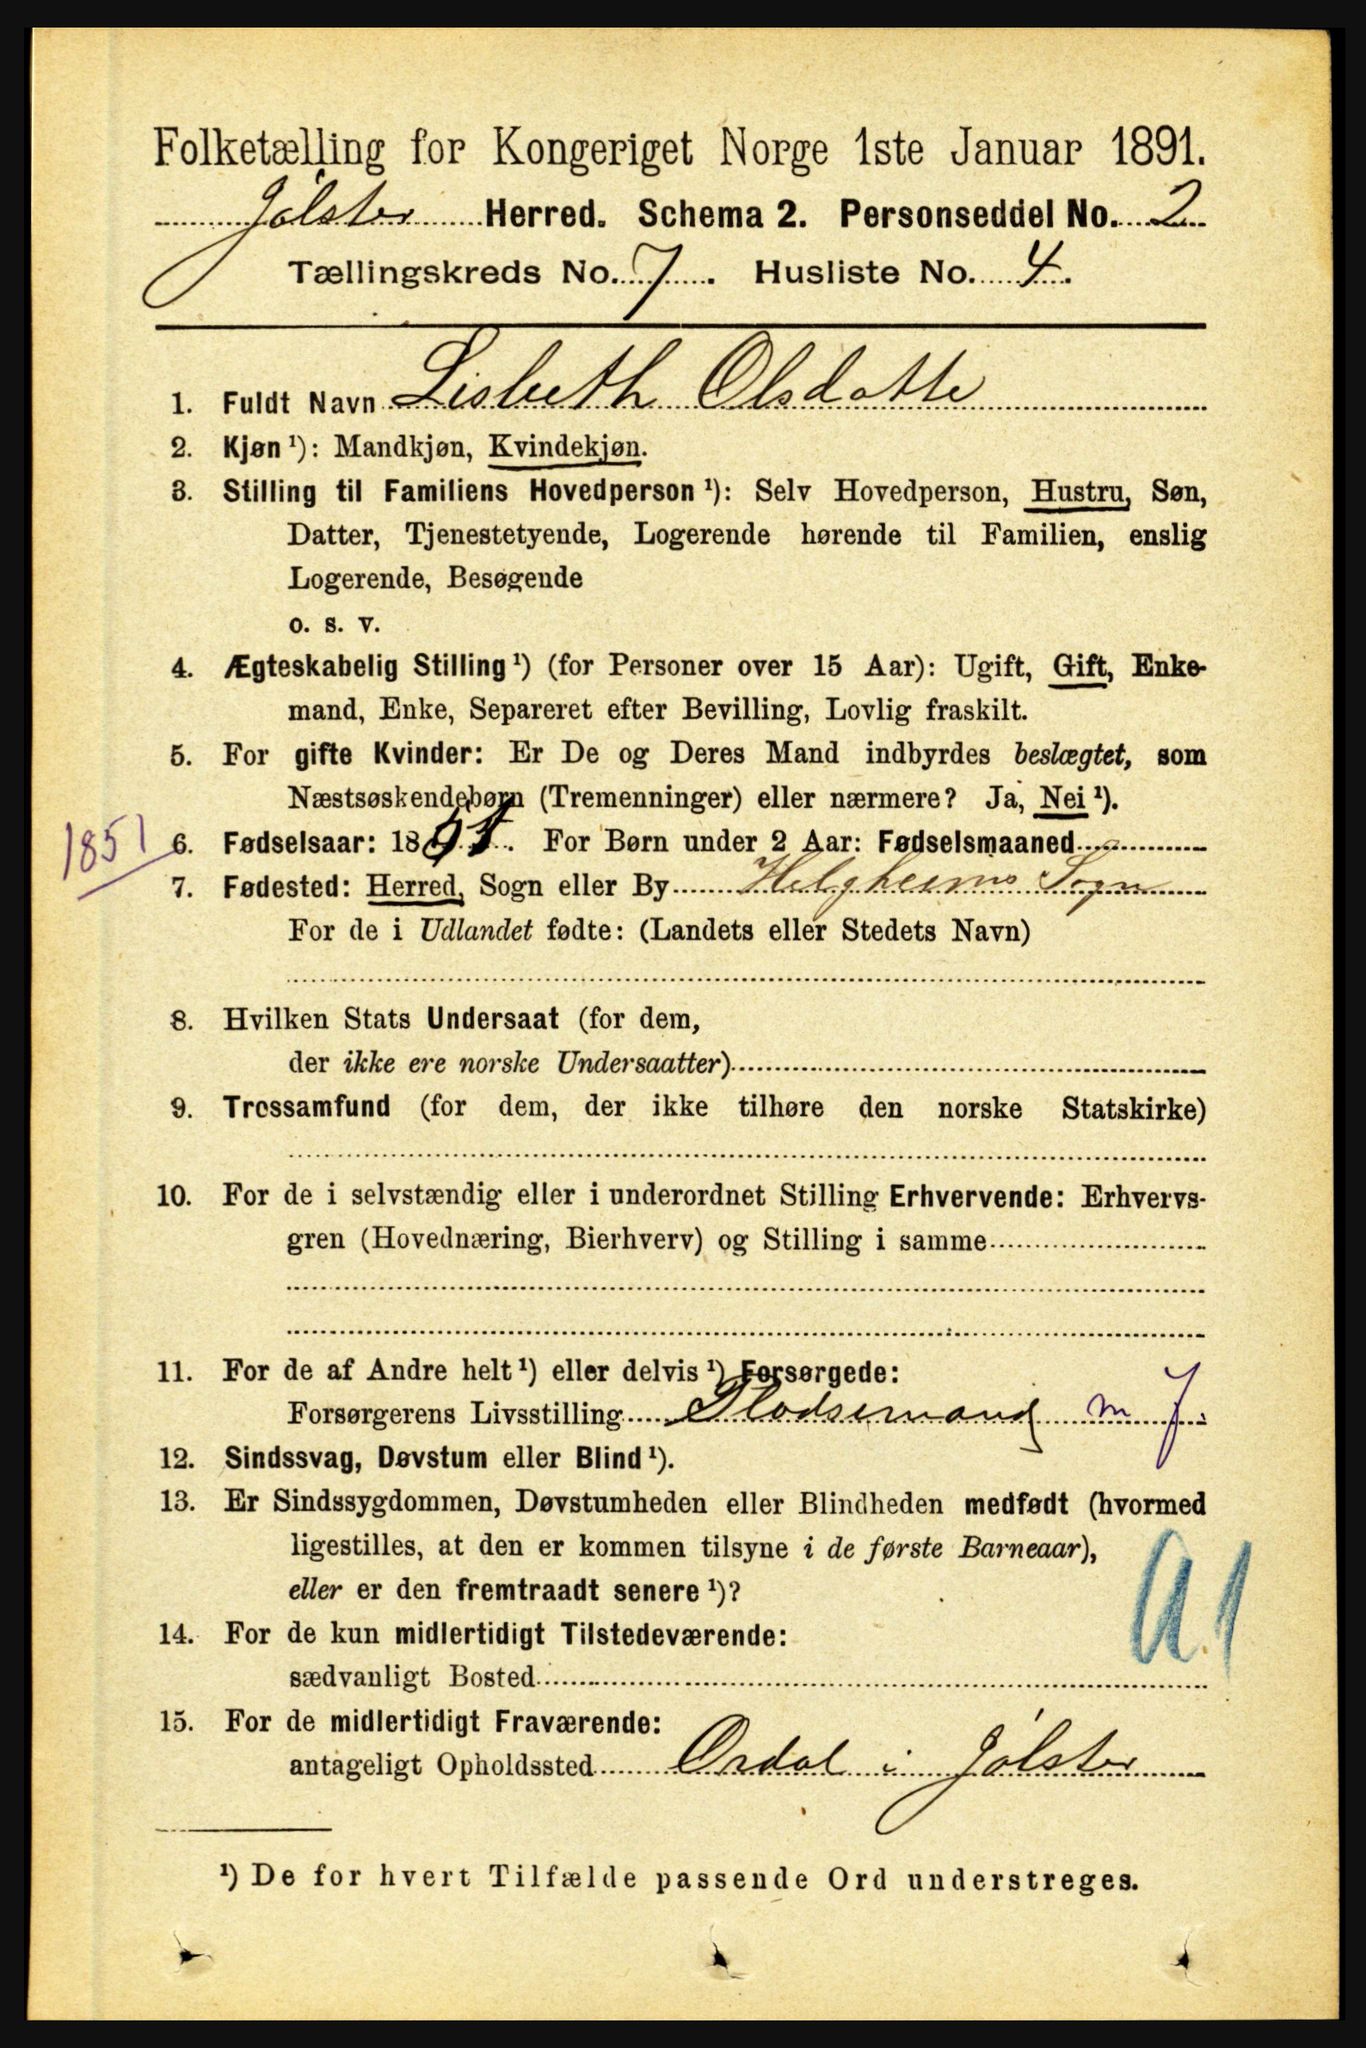 Folketælling for Kongeriget Norge 1ste Januar 1891.
Jølster Herred. Schema 2. Personseddel No. 2
Tællingskreds No. 7. Husliste No. 4.
1. Fuldt Navn Lisbeth Olsdatte
2. Kjøn ¹): Mandkjøn, Kvindekjøn.
3. Stilling til Familiens Hovedperson ¹): Selv Hovedperson, Hustru, Søn,
Datter, Tjenestetyende, Logerende hørende til Familien, enslig
Logerende, Besøgende
o. s. v.
4. Ægteskabelig Stilling ¹) (for Personer over 15 Aar): Ugift, Gift, Enke-
mand, Enke, Separeret efter Bevilling, Lovlig fraskilt.
5. For gifte Kvinder: Er De og Deres Mand indbyrdes beslægtet, som
Næstsøskendebørn (Tremenninger) eller nærmere? Ja, Nei ¹).
1851
6. Fødselsaar: 1851. For Børn under 2 Aar: Fødselsmaaned
7. Fødested: Herred, Sogn eller By Helgheims Sogn
For de i Udlandet fødte: (Landets eller Stedets Navn)
8. Hvilken Stats Undersaat (for dem,
der ikke ere norske Undersaatter)
9. Trossamfund (for dem, der ikke tilhøre den norske Statskirke)
10. For de i selvstændig eller i underordnet Stilling Erhvervende: Erhvervs-
gren (Hovednæring, Bierhverv) og Stilling i samme
11. For de af Andre helt ¹) eller delvis ¹) Forsørgede:
Forsørgerens Livsstilling Pladsemand m J.
12. Sindssvag, Døvstum eller Blind ¹).
13. Er Sindssygdommen, Døvstumheden eller Blindheden medfødt (hvormed
ligestilles, at den er kommen tilsyne i de første Barneaar),
eller er den fremtraadt senere ¹)?
A.1
14. For de kun midlertidigt Tilstedeværende:
sædvanligt Bosted
15. For de midlertidigt Fraværende:
antageligt Opholdssted Ordal i Jølster
¹) De for hvert Tilfælde passende Ord understreges.